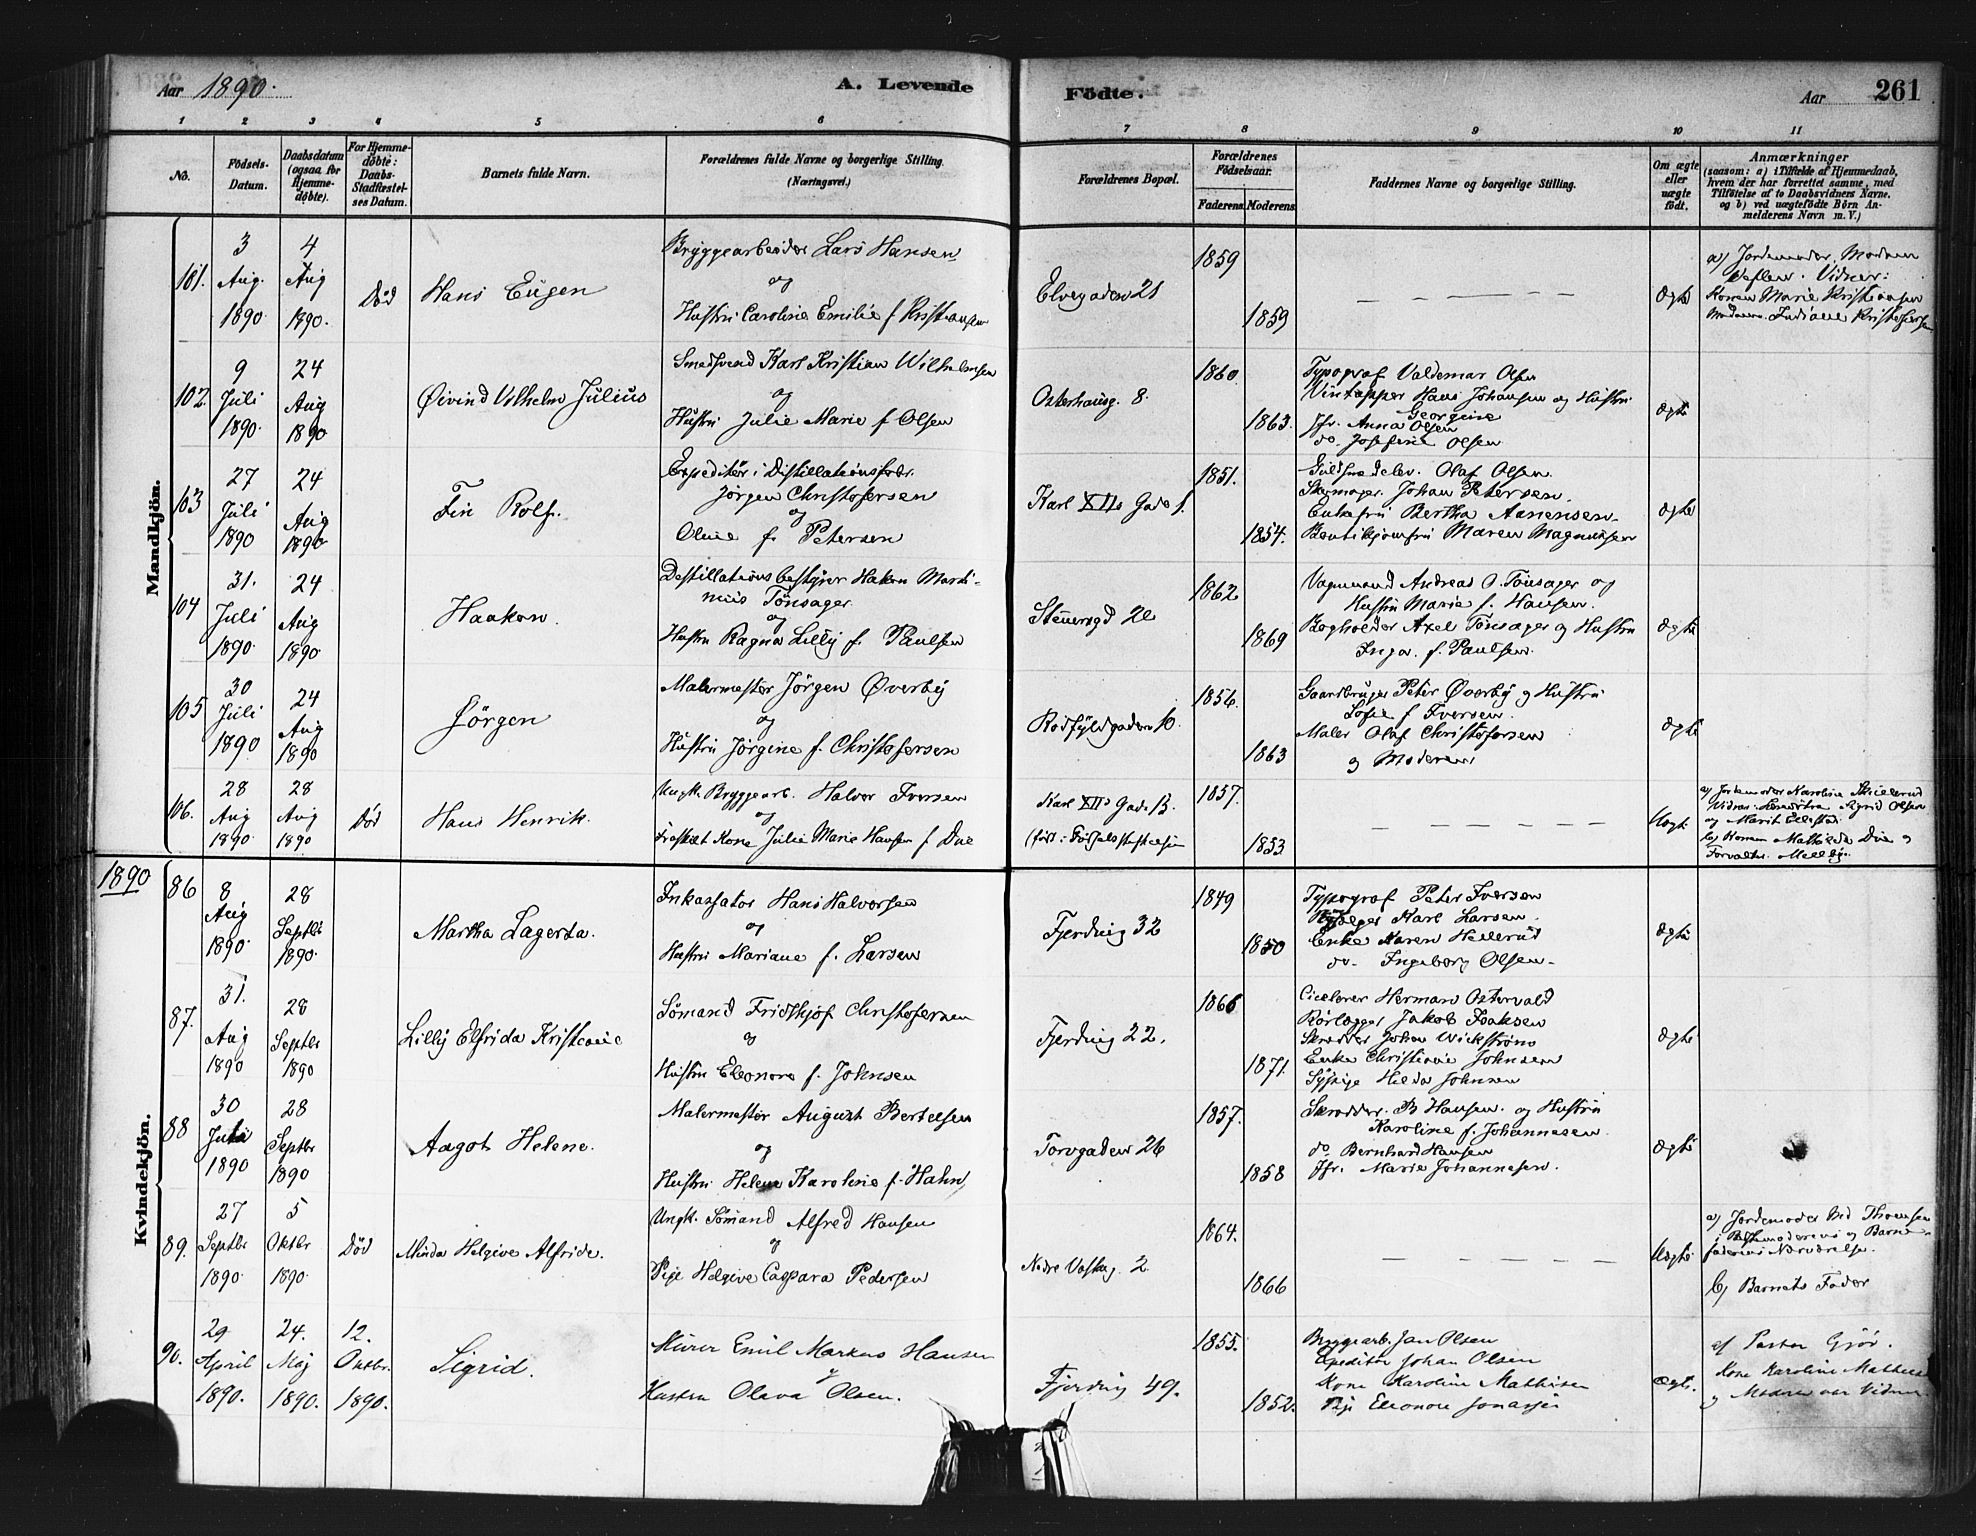 Aar 1890.
A. Levende
Födte.
Aar
261
1 2 3 4 5 6 7 8 9 10 11
No.
Födsels-
Datum.
Daabsdatum
(ogsaa for
Hjemme-
döbte).
For Hjemme-
döbte:
Daabs-
Stadfæstel-
ses Datum.
Barnets fulde Navn.
Forældrenes fulde Navne og borgerlige Stilling.
(Næringsvei.)
Forældrenes Bopæl.
Forældrenes
Födselsaar.
Faderens.
Moderens.
Faddernes Navne og borgerlige Stilling.
Om ægte
eller
uægte
födt.
Anmærkninger
(saasom: a) i Tilfælde af Hjemmedaab,
hvem der har forrettet samme, med
Tilföielse af to Daabsvidners Navne,
og b) ved uægtefödte Börn An-
melderens Navn m. V.)
Mandkjön.
101.
3
Aug.
1890
4
Aug
1890.
Död
Hans Eugen
Bryggearbeider Lars Hansen
og
Hustru Caroline Emilie f. Kristiansen
Elvegaden 21
1859
1859
— — — — —
Ægte
a) Jordemoder Madam
Vidner:
Konen Marie Kristiansen
102.
9
Juli
1890
24
Aug
1890
Øivind Vilhelm Julius
Smedsvend Karl Kristian Wilhelmsen
og
Hustru Julie Marie f. Olsen
Osterhausg. 8.
1860
1863.
Typograf Valdemar Olsen
Vintapper Hans Johansen og Hustru
Georgine
Jfr. Anna Olsen
do. Josefine Olsen
Ægte
103
27
Juli
1890
24
Aug
1890
Fin Rolf.
Expeditör i Distillationsforr.
Jörgen Christofersen
og
Oline f. Petersen
Karl XIIs Gade 1.
1851.
1854.
Guldsmedelev. Olaf Olsen.
Skomager. Johan Petersen.
Enkefru Bertha Aanensen.
Butikjomfru Maren Magnussen
Ægte
104
31.
Juli
1890
24
Aug
1890
Haakon.
Destillationsbestyrer Hakon Marti-
nius Tönsager
og
Hustru Ragna Lilly f. Paulsen
Stenersgd 2e
1862
1869
Vognmand Andreas O. Tönsager og
Hustru Marie f. Hansen.
Bogholder Axel Tönsager og Hustru
Inga. f. Paulsen.
Ægte
105
30
Juli
1890
24
Aug
1890
Jörgen
Malermester Jörgen Øverby
og
Hustru Jörgine f. Christofersen
Rodfyldgaden 10.
1856.
1863
Gaardbruger Peter Øverby og Hustru
Sofie f. Iversen.
Maler Olaf Christofersen
og Moderen
Ægte
106.
28
Aug
1890
28
Aug
1890
Död
Hans Henrik.
Ungk. Bryggearb. Halvor Iversen
og
Fraskilt Kone Julie Marie Hansen f. Due
Karl XIIs Gade 13.
(född i Födselsstiftelsen
1857.
1853
— — — — —
Uægte
a) Jordemoder Karoline
Vidner: Sigrid Olsen
og Marit
b) Konen Mathilde Due og
Forvalter
1890
Kvindekjön.
86
8
Aug
1890
28
Septbr
1890
Martha Lagerta.
Inkassator Hans Halvorsen
og
Hustru Mariane f. Larsen
Fjerding 32
1849
1850
Typograf Peter Iversen
Karl Larsen.
Enke Karen Hellerud
do. Ingeborg Olsen.
Ægte
87.
31.
Aug
1890
28
Septbr
1890
Lilly Elfrida Kristiane
Sömand Fridthjof Christofersen
og
Hustru Eleonora f. Johnsen
Fjerding 22.
1866
1871.
Ciselerer Herman Ostervald
Rörlægger Jakob Isaksen
Skrædder Johan Wickström
Enke Christiane Johnsen
Sypige Hilda Johnsen
Ægte
88
30
Juli
1890
28
Septbr
1890
Aagot Helene.
Malermester August Bertelsen
og
Hustru Helene Karoline f. Hahn
Torvgaden 26
1857.
1858
Skrædder. B Hansen. og Hustru
Karoline f. Johannesen.
do Bernhard Hansen
Jfr. Marie Johannesen.
Ægte
89.
27
Septbr
1890
5
Oktbr
1890.
Död
Minda Helgine Alfride.
Ungk. Sömand Alfred Hansen
og
Pige Helgine Caspara Pedersen
Nedre Voldg. 2
1864.
1866
— — — — —
Uægte
a) Jordemoder Thomsen
i Bestemoderens og Barne-
faderens Nærværelse.
b) Barnets Fader
90.
29
April
1890.
24.
Maj
1890.
12.
Oktbr.
1890.
Sigrid.
Murer Emil Markus Hansen
og
Hustru Olava Olsen.
Fjerding 49.
1855.
1852.
Bryggearb. Jan Olsen
Expeditör Johan Olsen
Kone Karoline Mathisen
Pige Eleonore Jonassen
Ægte.
af Pastor Gjör.
Kone Karoline Mathisen
og Moderen var Vidner